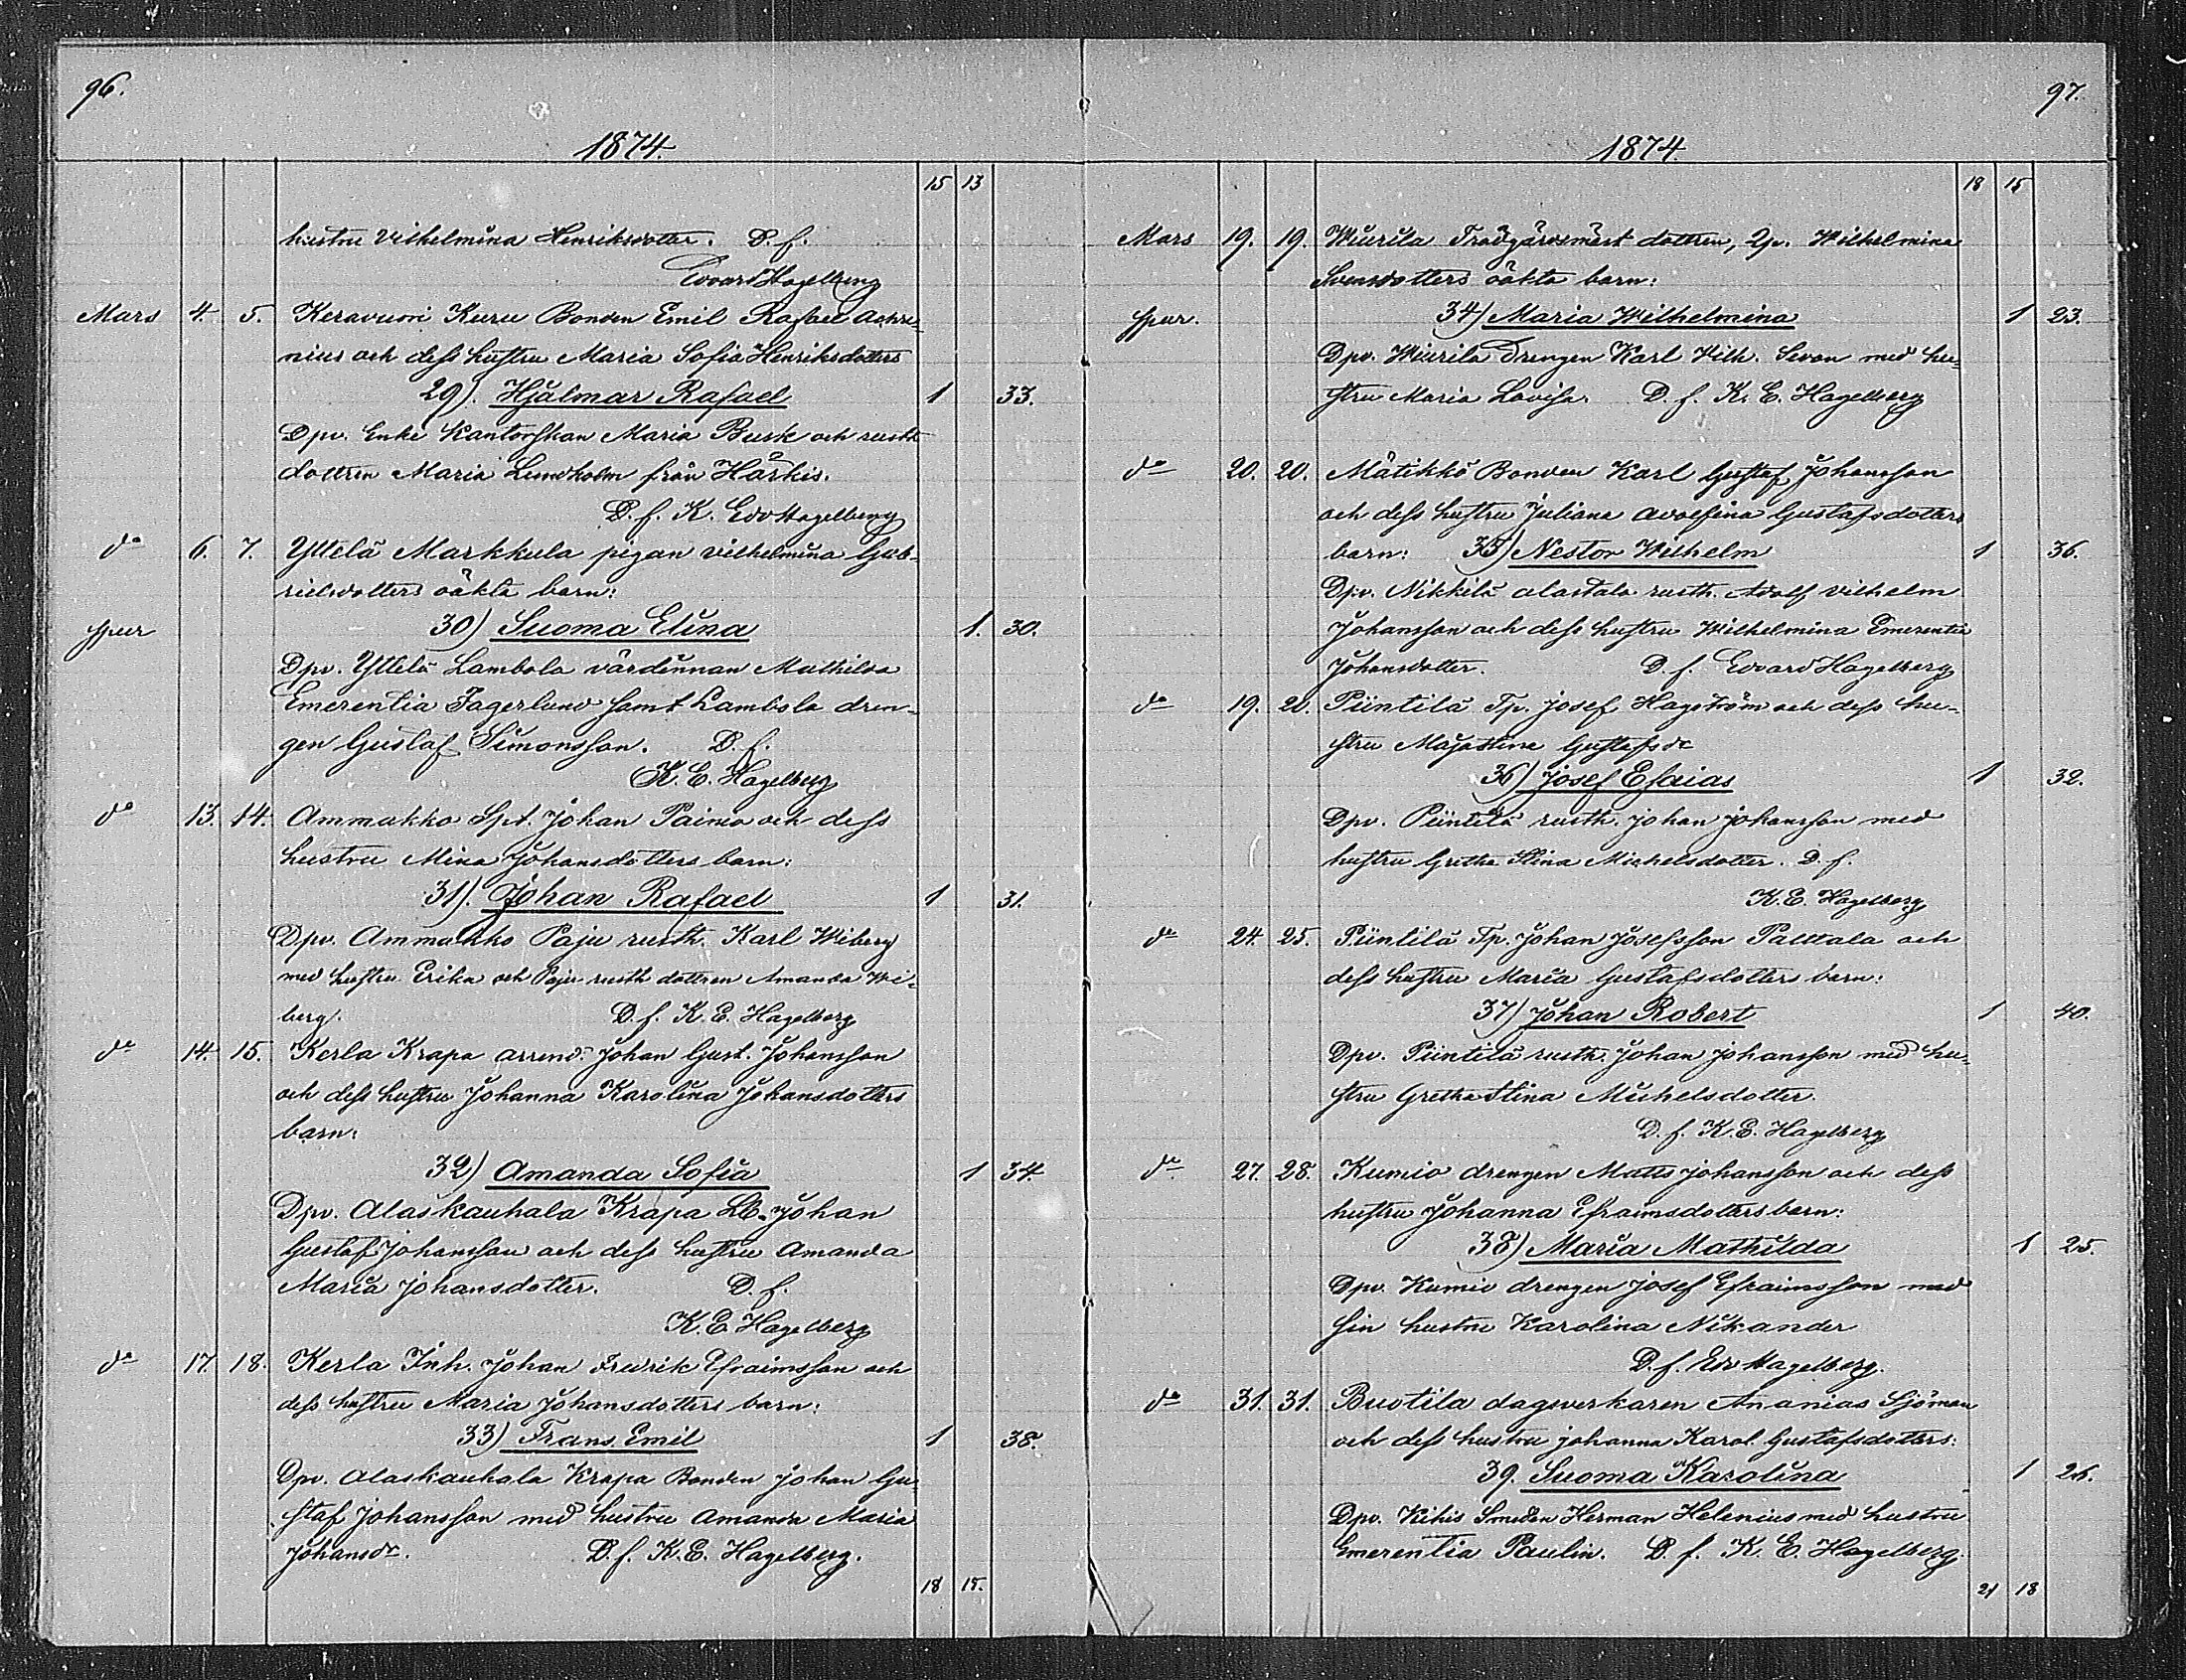 96.
1874.
15 13
hustru Vilhelmina Henriksdotter. D. f.
Edvard Hagelberg
Mars 4. 5. Keravuori Kuru Bonden Emil Rafael Achre-
nius och dess hustru Maria Sofia Henriksdotters
29). Hjalmar Rafael 1 33.
Dpv. Enke Kantorskan Maria Busk och rusth
dottren Maria Lundholm från Härkis.
D. f. K. Edv Hagelberg
do 6. 7. Yttelä Markkula pigan Vilhelmina Gab-
rielsdotters oäkta barn:
spur 30) Suoma Elina 1. 30.
Dpv. Yttelä Lambola värdinnan Mathilda
Emerentia Fagerlund samt Lambola dren-
gen Gustaf Simonsson. D. f.
K. E. Hagelberg
do 13. 14. Ammakko Spt. Johan Paimio och dess
hustru Mina Johansdotters barn:
31). Johan Rafael 1 31.
Dpv. Ammakko Paju rusth. Karl Wiberg
med hustru Erika och Paju rusth dottren Amanda Wi-
berg. D. f. K. E. Hagelberg
do 14. 15. Kerla Krapa arrend. Johan Gust. Johansson
och dess hustru Johanna Karolina Johansdotters
barn:
32) Amanda Sofia 1 34.
Dpv. Alaskauhala Krapa Lb. Johan
Gustaf Johansson och dess hustru Amanda
Maria Johansdotter. D. f.
K. E. Hagelberg
do 17. 18. Kerla Inh. Johan Fredrik Efraimsson och
dess hustru Maria Johansdotters barn:
33) Frans Emil 1 38.
Dpv. Alaskauhala Krapa Bonden Johan Gu-
staf Johansson med hustru Amanda Maria
Johansdr. D. f. K. E. Hagelberg.
18 15.
97.
1874.
18 15
Mars 19. 19. Wiurila Trädgårdsmäst dottren, Qp. Wilhelmina
Svensdotters oäkta barn:
spur. 34) Maria Wilhelmina 1 23.
Dpv. Wiurila Drengen Karl Vilh. Sevon med hu-
stru Maria Lovisa. D. f. K. E. Hagelberg
do 20. 20. Mätikkö Bonden Karl Gustaf Johansson
och dess hustru Juliana Adolfina Gustafsdotters
barn: 35) Nestor Wilhelm 1 36.
Dpv. Nikkilä Alastalo rusth. Adolf Vilhelm
Johansson och dess hustru Wilhelmina Emerentia
Johansdotter. D. f. Edvard Hagelberg
do 19. 20. Piintilä Tp. Josef Hagström och dess hu-
stru Majastina Gustafsdr
36) Josef Esaias 1 32.
Dpv. Piintilä rusth. Johan Johansson med
hustru Gretha Stina Michelsdotter. D. f.
K. E. Hagelberg
do 24. 25. Piintilä Tp. Johan Josefsson Palttala och
dess hustru Maria Gustafsdotters barn:
37) Johan Robert 1 40.
Dpv. Piintilä rusth. Johan Johansson med hu-
stru Gretha Stina Michelsdotter.
D. f. K. E. Hagelberg
do 27. 28. Kumio drengen Matts Johansson och dess
hustru Johanna Efraimsdotters barn:
38) Maria Mathilda 1 25.
Dpv. Kumio drengen Josef Efraimsson med
sin hustru Karolina Nikander
D. f. Edv Hagelberg.
do 31. 31. Buotila dagsverkaren Ananias Sjöman
och dess hustru Johanna Karol. Gustafsdotters:
39. Suoma Karolina 1 26.
Dpv. Kihis Smeden Herman Helenius med hustru
Emerentia Paulin. D. f. K. E. Hagelberg.
21 18